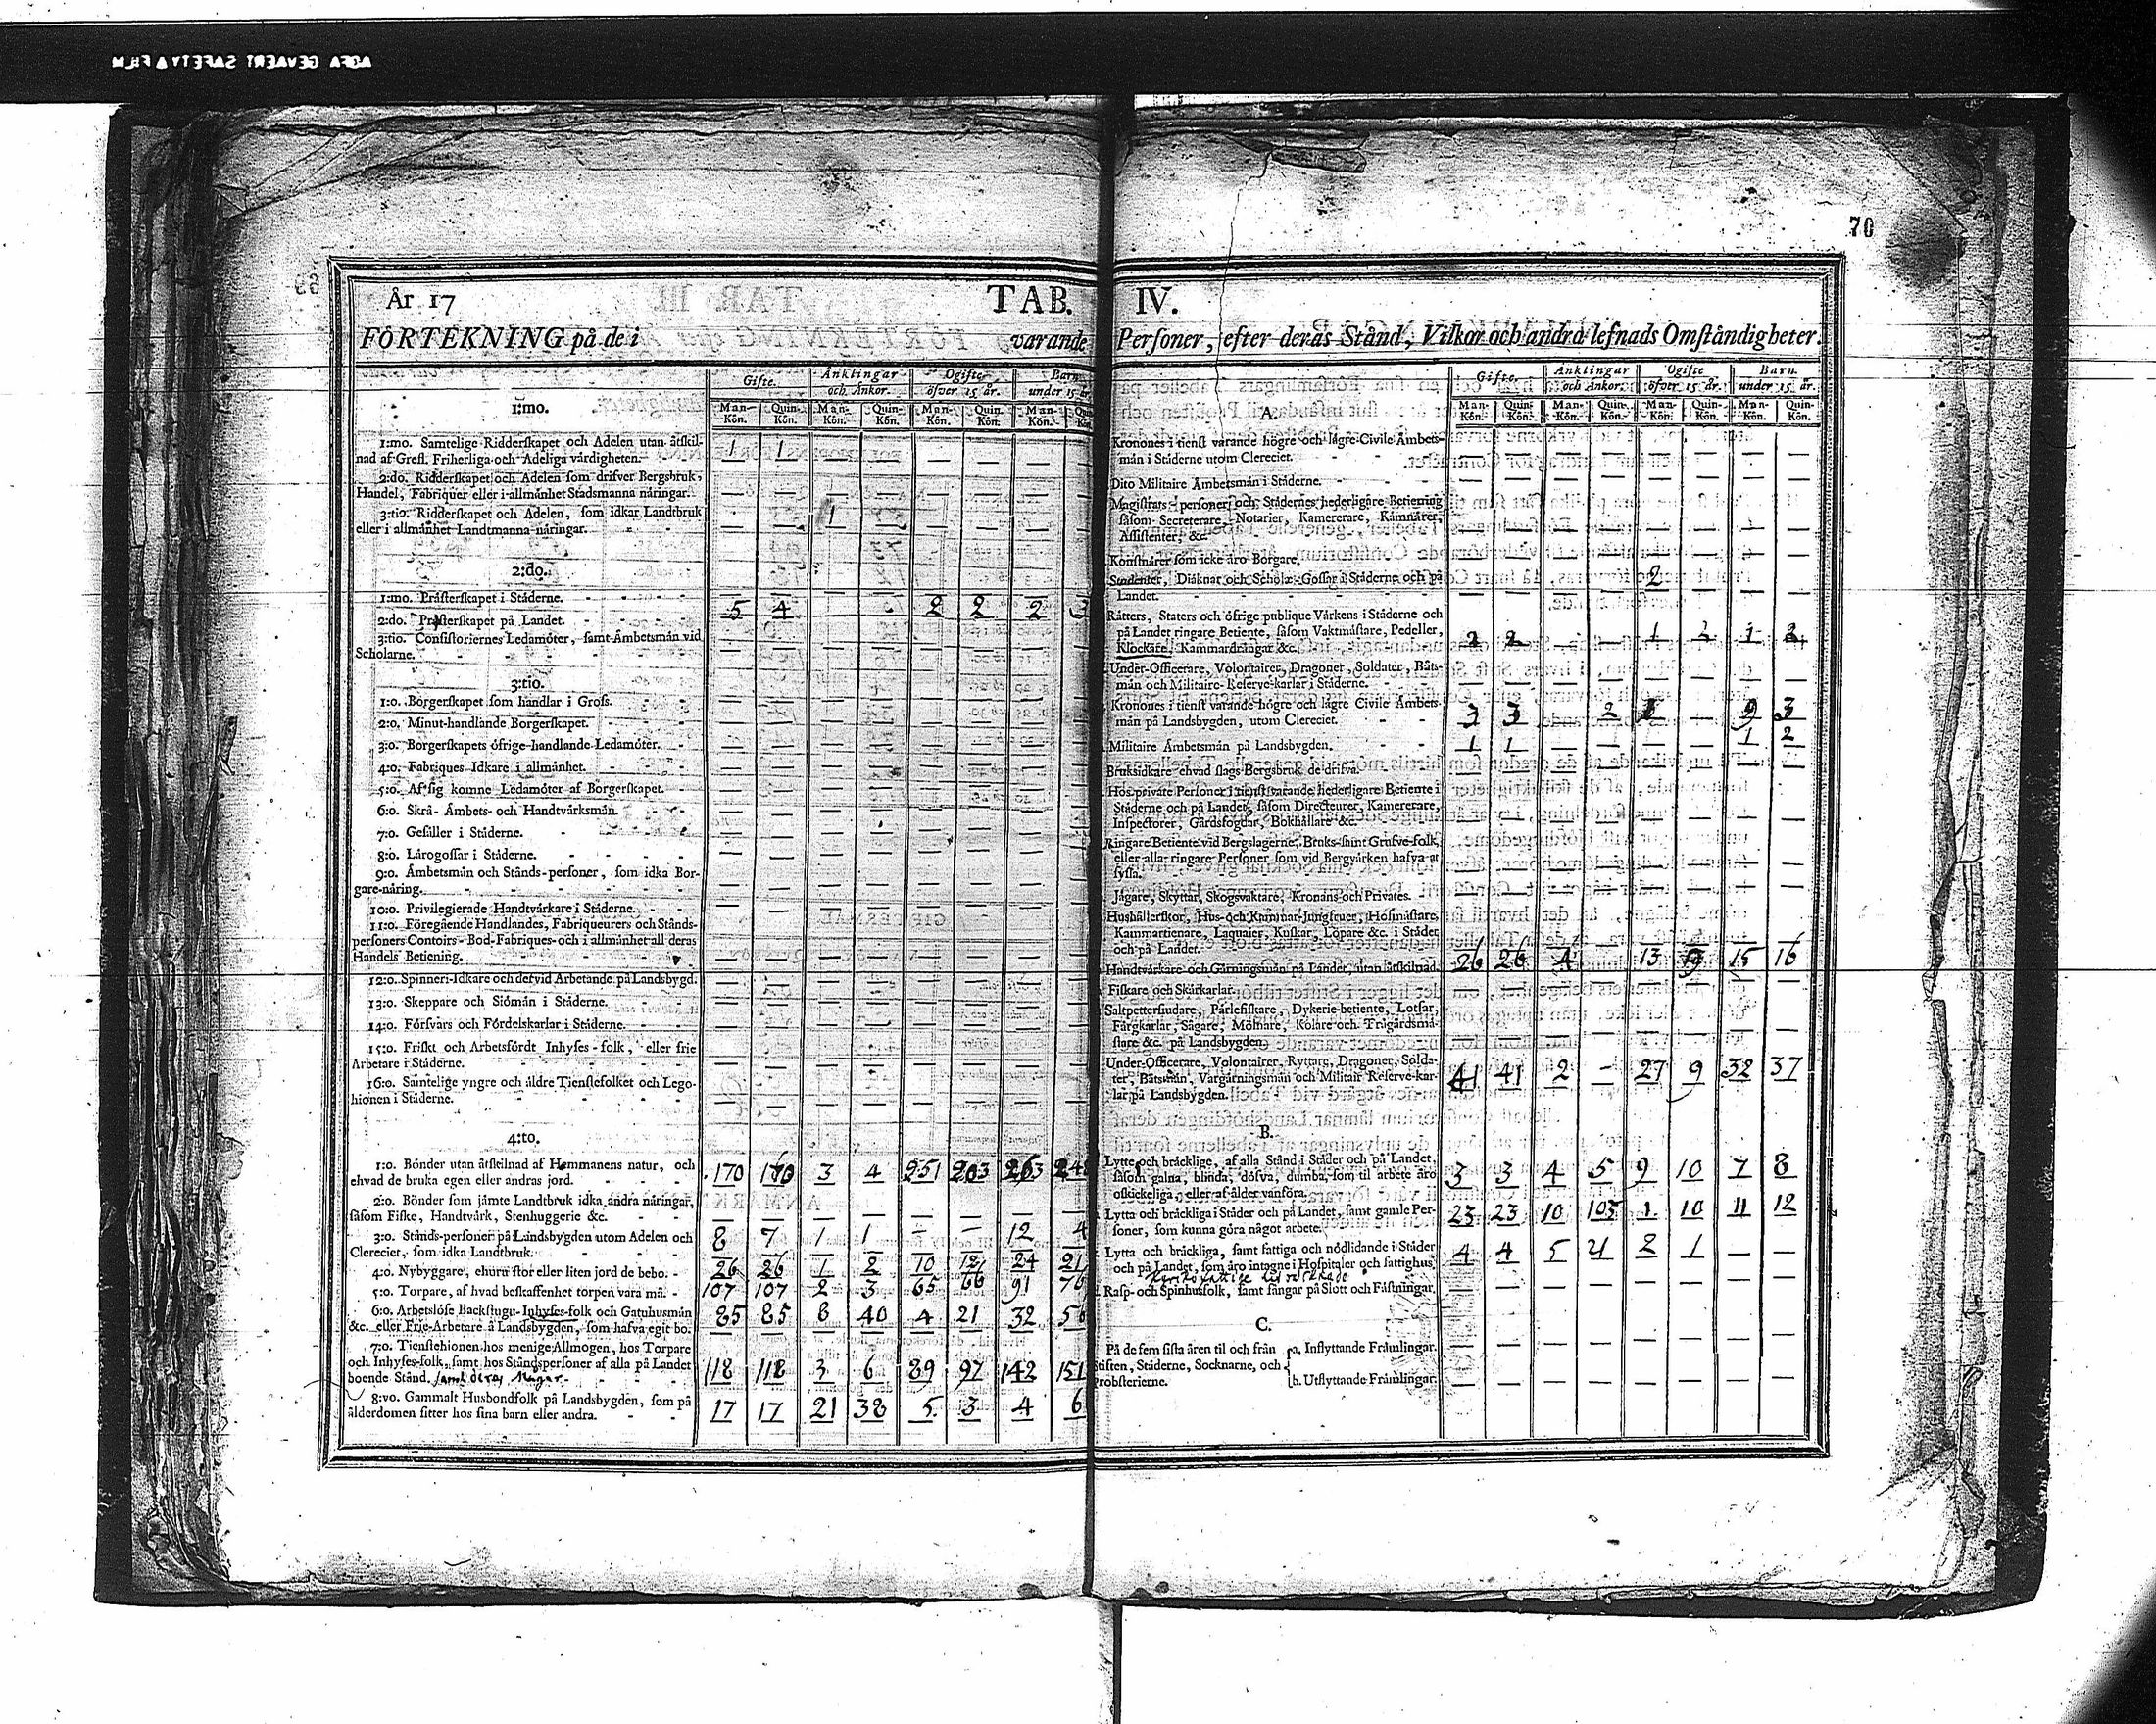 AGFA GEVAERT SAFETY FILM
70
År 17 TAB. IV.
FÖRTEKNING på de i varande Personer, efter deras Stånd, Vilkor och andra lefnads Omståndigheter.
Gifte. Änklingar och Änkor. Ogifte öfver 15 år. Barn under 15 år.
Man-Kön. Quin-Kön. Man-Kön. Quin-Kön. Man-Kön. Quin-Kön. Man-Kön. Quin-Kön.
1:mo.
1:mo. Samtelige Ridderskapet och Adelen utan åtskil-
nad af Grefl. Friherliga och Adeliga vårdigheten. 1 1 — — — — —
2:do. Ridderskapet och Adelen som drifver Bergsbruk,
Handel, Fabriquer eller i allmånhet Stadsmanna nåringar. — — — — — — —
3:tio. Ridderskapet och Adelen, som idkar Landtbruk
eller i allmånhet Landtmanna-nåringar. — — 1 — — — —
2:do.
1:mo. Pråsterskapet i Ståderne.
2:do. Pråsterskapet på Landet. 5 4 2 2 2 3
3:tio. Consistoriernes Ledamöter, samt Åmbetsmån vid
Scholarne.
3:tio.
1:o. Borgerskapet som handlar i Gross.
2:o. Minut-handlande Borgerskapet.
3:o. Borgerskapets öfrige handlande Ledamöter.
4:o. Fabriques Idkare i allmånhet.
5:o. Af sig komne Ledamöter af Borgerskapet.
6:o. Skrå- Åmbets- och Handtvårksmån.
7:o. Gesåller i Ståderne.
8:o. Lårogossar i Ståderne.
9:o. Åmbetsmån och Stånds-personer, som idka Bor-
gare-nåring.
10:o. Privilegierade Handtvårkare i Ståderne.
11:o. Föregående Handlandes, Fabriqueurers och Stånds-
personers Contoirs- Bod- Fabriques- och i allmånhet all deras
Handels Betiening.
12:o. Spinneri-Idkare och detvid Arbetande på Landsbygd.
13:o. Skeppare och Siömån i Ståderne.
14:o. Försvars och Fördelskarlar i Ståderne.
15:o. Friskt och Arbetsfördt Inhyses-folk, eller frie
Arbetare i Ståderne.
16:o. Samtelige yngre och åldre Tienstefolket och Lego-
hionen i Ståderne.
4:to.
1:o. Bönder utan åtskilnad af Hemmanens natur, och
ehvad de bruka egen eller andras jord. 170 170 3 4 251 203 263
2:o. Bönder som jåmte Landtbruk idka andra nåringar,
såsom Fiske, Handtvårk, Stenhuggerie &c. — — — — — — —
3:o. Stånds-personer på Landsbygden utom Adelen och
Clereciet, som idka Landtbruk. 8 7 1 1 — — 12 4
4:o. Nybyggare, ehuru stor eller liten jord de bebo. 26 26 1 2 10 12 24 21
5:o. Torpare, af hvad beskaffenhet torpen vara må. 107 107 2 3 65 66 91 76
6:o. Arbetslöse Backstugu-Inhyses-folk och Gatuhusmån
&c. eller Frie-Arbetare å Landsbygden, som hafva egit bo. 85 85 8 40 4 21 32
7:o. Tienstehionen hos menige Allmogen, hos Torpare
och Inhyses-folk, samt hos Ståndspersoner af alla på Landet
boende Stånd. 118 118 3 6 89 97 142 151
8:vo. Gammalt Husbondfolk på Landsbygden, som på
ålderdomen sitter hos sina barn eller andra. 17 17 21 38 5 3 4 6
Gifte. Änklingar och Änkor. Ogifte öfver 15 år. Barn under 15 år.
Man-Kön. Quin-Kön. Man-Kön. Quin-Kön. Man-Kön. Quin-Kön. Man-Kön. Quin-Kön.
A.
Kronones i tienst varande högre och lågre Civile Åmbets-
mån i Ståderne utom Clereciet.
Dito Militaire Åmbetsmån i Ståderne.
Magistrats-personer och Stådernes hederligare Betiening
såsom Secreterare, Notarier, Kamererare, Kåmnårer,
Assistenter, &c.
Konstnårer som icke åro Borgare.
Studenter, Diåknar och Scholæ-Gossar i Ståderne och på
Landet. 2
Råtters, Staters och öfrige publique Vårkens i Ståderne och
på Landet ringare Betiente, såsom Vaktmåstare, Pedeller,
Klockare, Kammardrångar &c. 2 2 1 2 1 2
Under-Officerare, Volontairer, Dragoner, Soldater, Båts-
mån och Militaire-Reserve-karlar i Ståderne.
Kronones i tienst varande högre och lågre Civile Åmbets-
mån på Landsbygden, utom Clereciet. 3 3 2 — 9 3
Militaire Åmbetsmån på Landsbygden. 1 1 — — — — 1 2
Bruksidkare ehvad slags Bergsbruk de drifva.
Hos private Personer i tienst varande hederligare Betiente i
Ståderne och på Landet, såsom Directeurer, Kamererare,
Inspectorer, Gårdsfogdar, Bokhållare &c.
Ringare Betiente vid Bergslagerne, Bruks- samt Grufve-folk,
eller alla ringare Personer som vid Bergvårken hafva at
syssla.
Jågare, Skyttar, Skogsvaktare, Kronans och Privates.
Hushållerskor, Hus- och Kammar-Jungfruer, Hofmåstare,
Kammartienare, Laquaier, Kuskar, Löpare &c. i Ståder
och på Landet.
Handtvårkare och Gårningsmån på Landet, utan åtskilnad. 26 26 4 13 9 15 16
Fiskare och Skårkarlar.
Saltpettersiudare, Pårlefiskare, Dykerie-betiente, Lotsar,
Fårgkarlar, Sågare, Mölnare, Kolare och Trågårdsmå-
stare &c. på Landsbygden.
Under-Officerare, Volontairer, Ryttare, Dragoner, Solda-
ter, Båtsmån, Vargårningsmån och Militair Reserve-kar-
lar på Landsbygden. 41 41 2 — 27 9 32 37
B.
Lytte och bråcklige, af alla Stånd i Ståder och på Landet,
såsom galna, blinda, döfva, dumba, som til arbete åro
oskickeliga, eller af ålder vanföra. 3 3 4 5 9 10 7 8
Lytta och bråckliga i Ståder och på Landet, samt gamle Per-
soner, som kunna göra något arbete. 23 23 10 105 1 10 11 12
Lytta och bråckliga, samt fattiga och nödlidande i Ståder
och på Landet, som åro intagne i Hospitaler och fattighus. 4 4 5 21 2 1 — —
Rasp- och Spinhusfolk, samt fångar på Slott och Fåstningar.
C.
På de fem sista åren til och från
Stiften, Ståderne, Socknarne, och
Probsterierne.
a. Inflyttande Fråmlingar.
b. Utflyttande Fråmlingar.